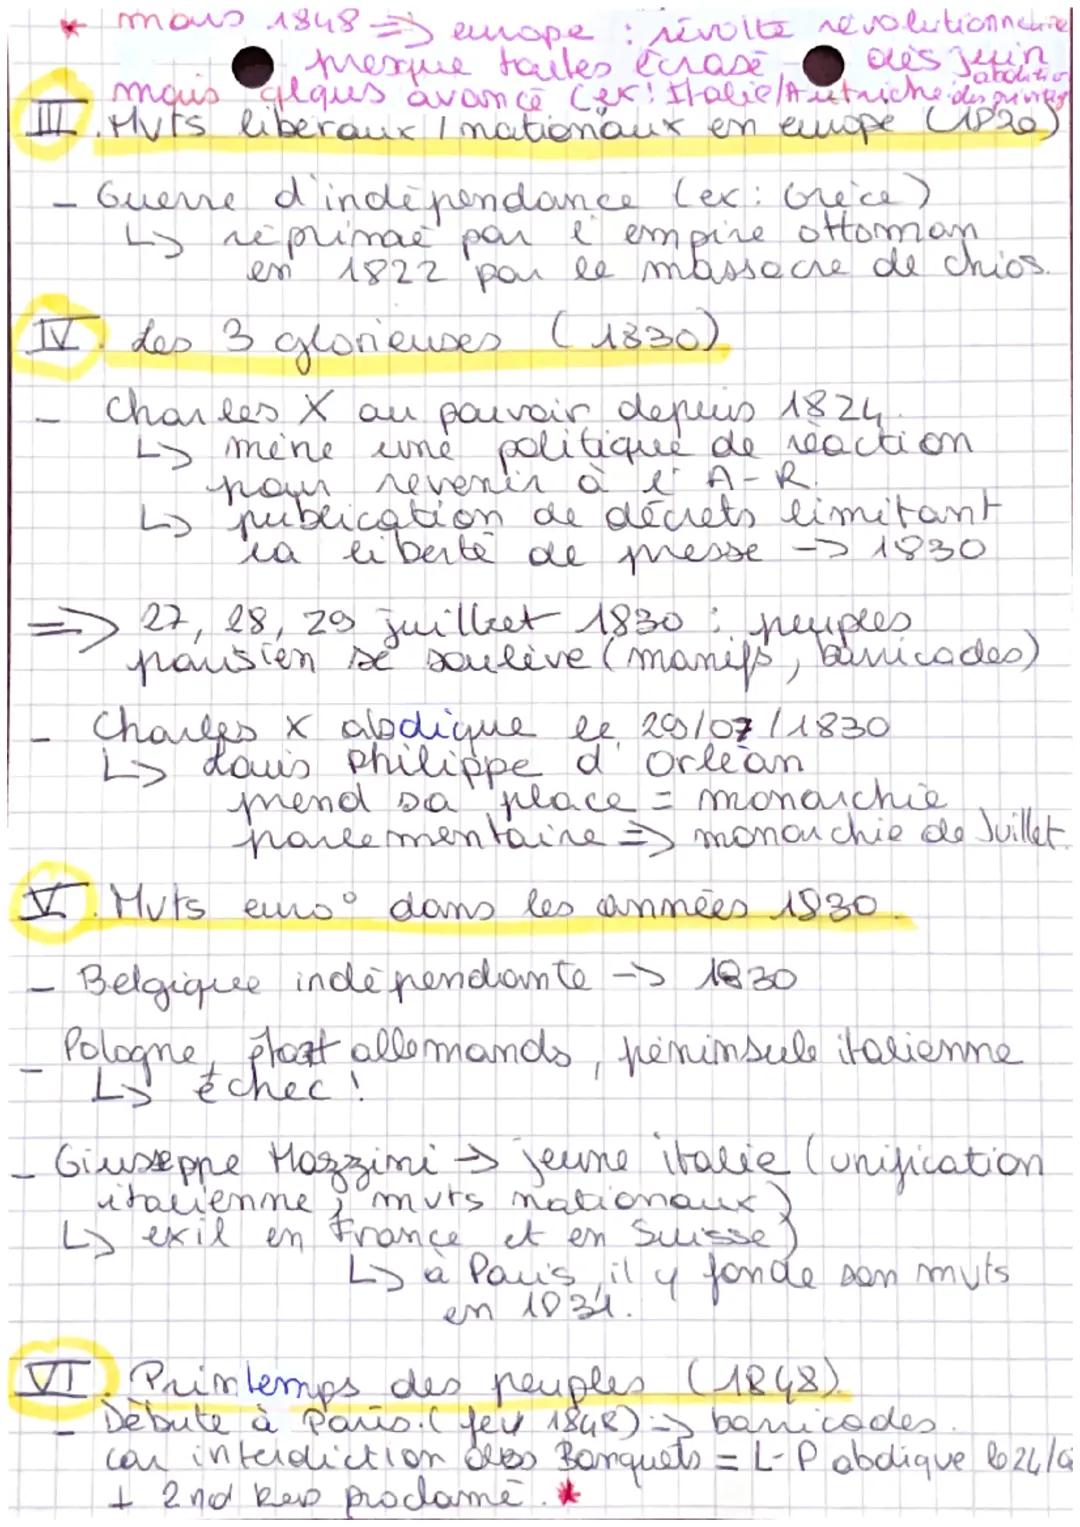 * mars 1848 => europe : révolte révolutionnaire
presque toutes écrasé dès juin
mais qlques avancé (ex: Italie/Autriche : abolition des privilèg
III. Mvts libéraux / nationaux en europe (1820)
- Guerre d'indépendance (ex : Grèce)
↳ réprimaé par l'empire ottoman
en 1822 par le massacre de chios.
IV. Les 3 glorieuses (1830)
- Charles X au pouvoir depuis 1824.
↳ mène une politique de réaction
pour revenir à l'A-R.
↳ publication de décrets limitant
la liberté de presse -> 1830
=> 27, 28, 29 juillet 1830 : peuples
parisien se soulève (manifs, barricades)
- Charles X abdique le 29/07/1830
↳ Louis Philippe d'Orléan
prend sa place = monarchie
parlementaire => monarchie de Juillet.
V. Mvts euro° dans les années 1830.
- Belgique indépendante -> 1830
- Pologne, état allemands, péninsule italienne
↳ échec !
- Giuseppe Mazzini -> jeune italie (unification
italienne ; mvts nationaux)
↳ exil en France et en Suisse)
↳ à Paris, il y fonde son mvts
en 1831.
VI. Printemps des peuples (1848).
- Débute à Paris. (fev 1848) => barricades.
car interdiction des Banquets = L-P abdique le 24/0
+ 2nd Rep proclamé. *